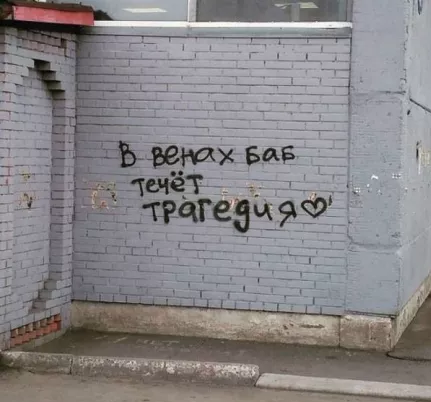 В венах баб
течёт
трагедия♡